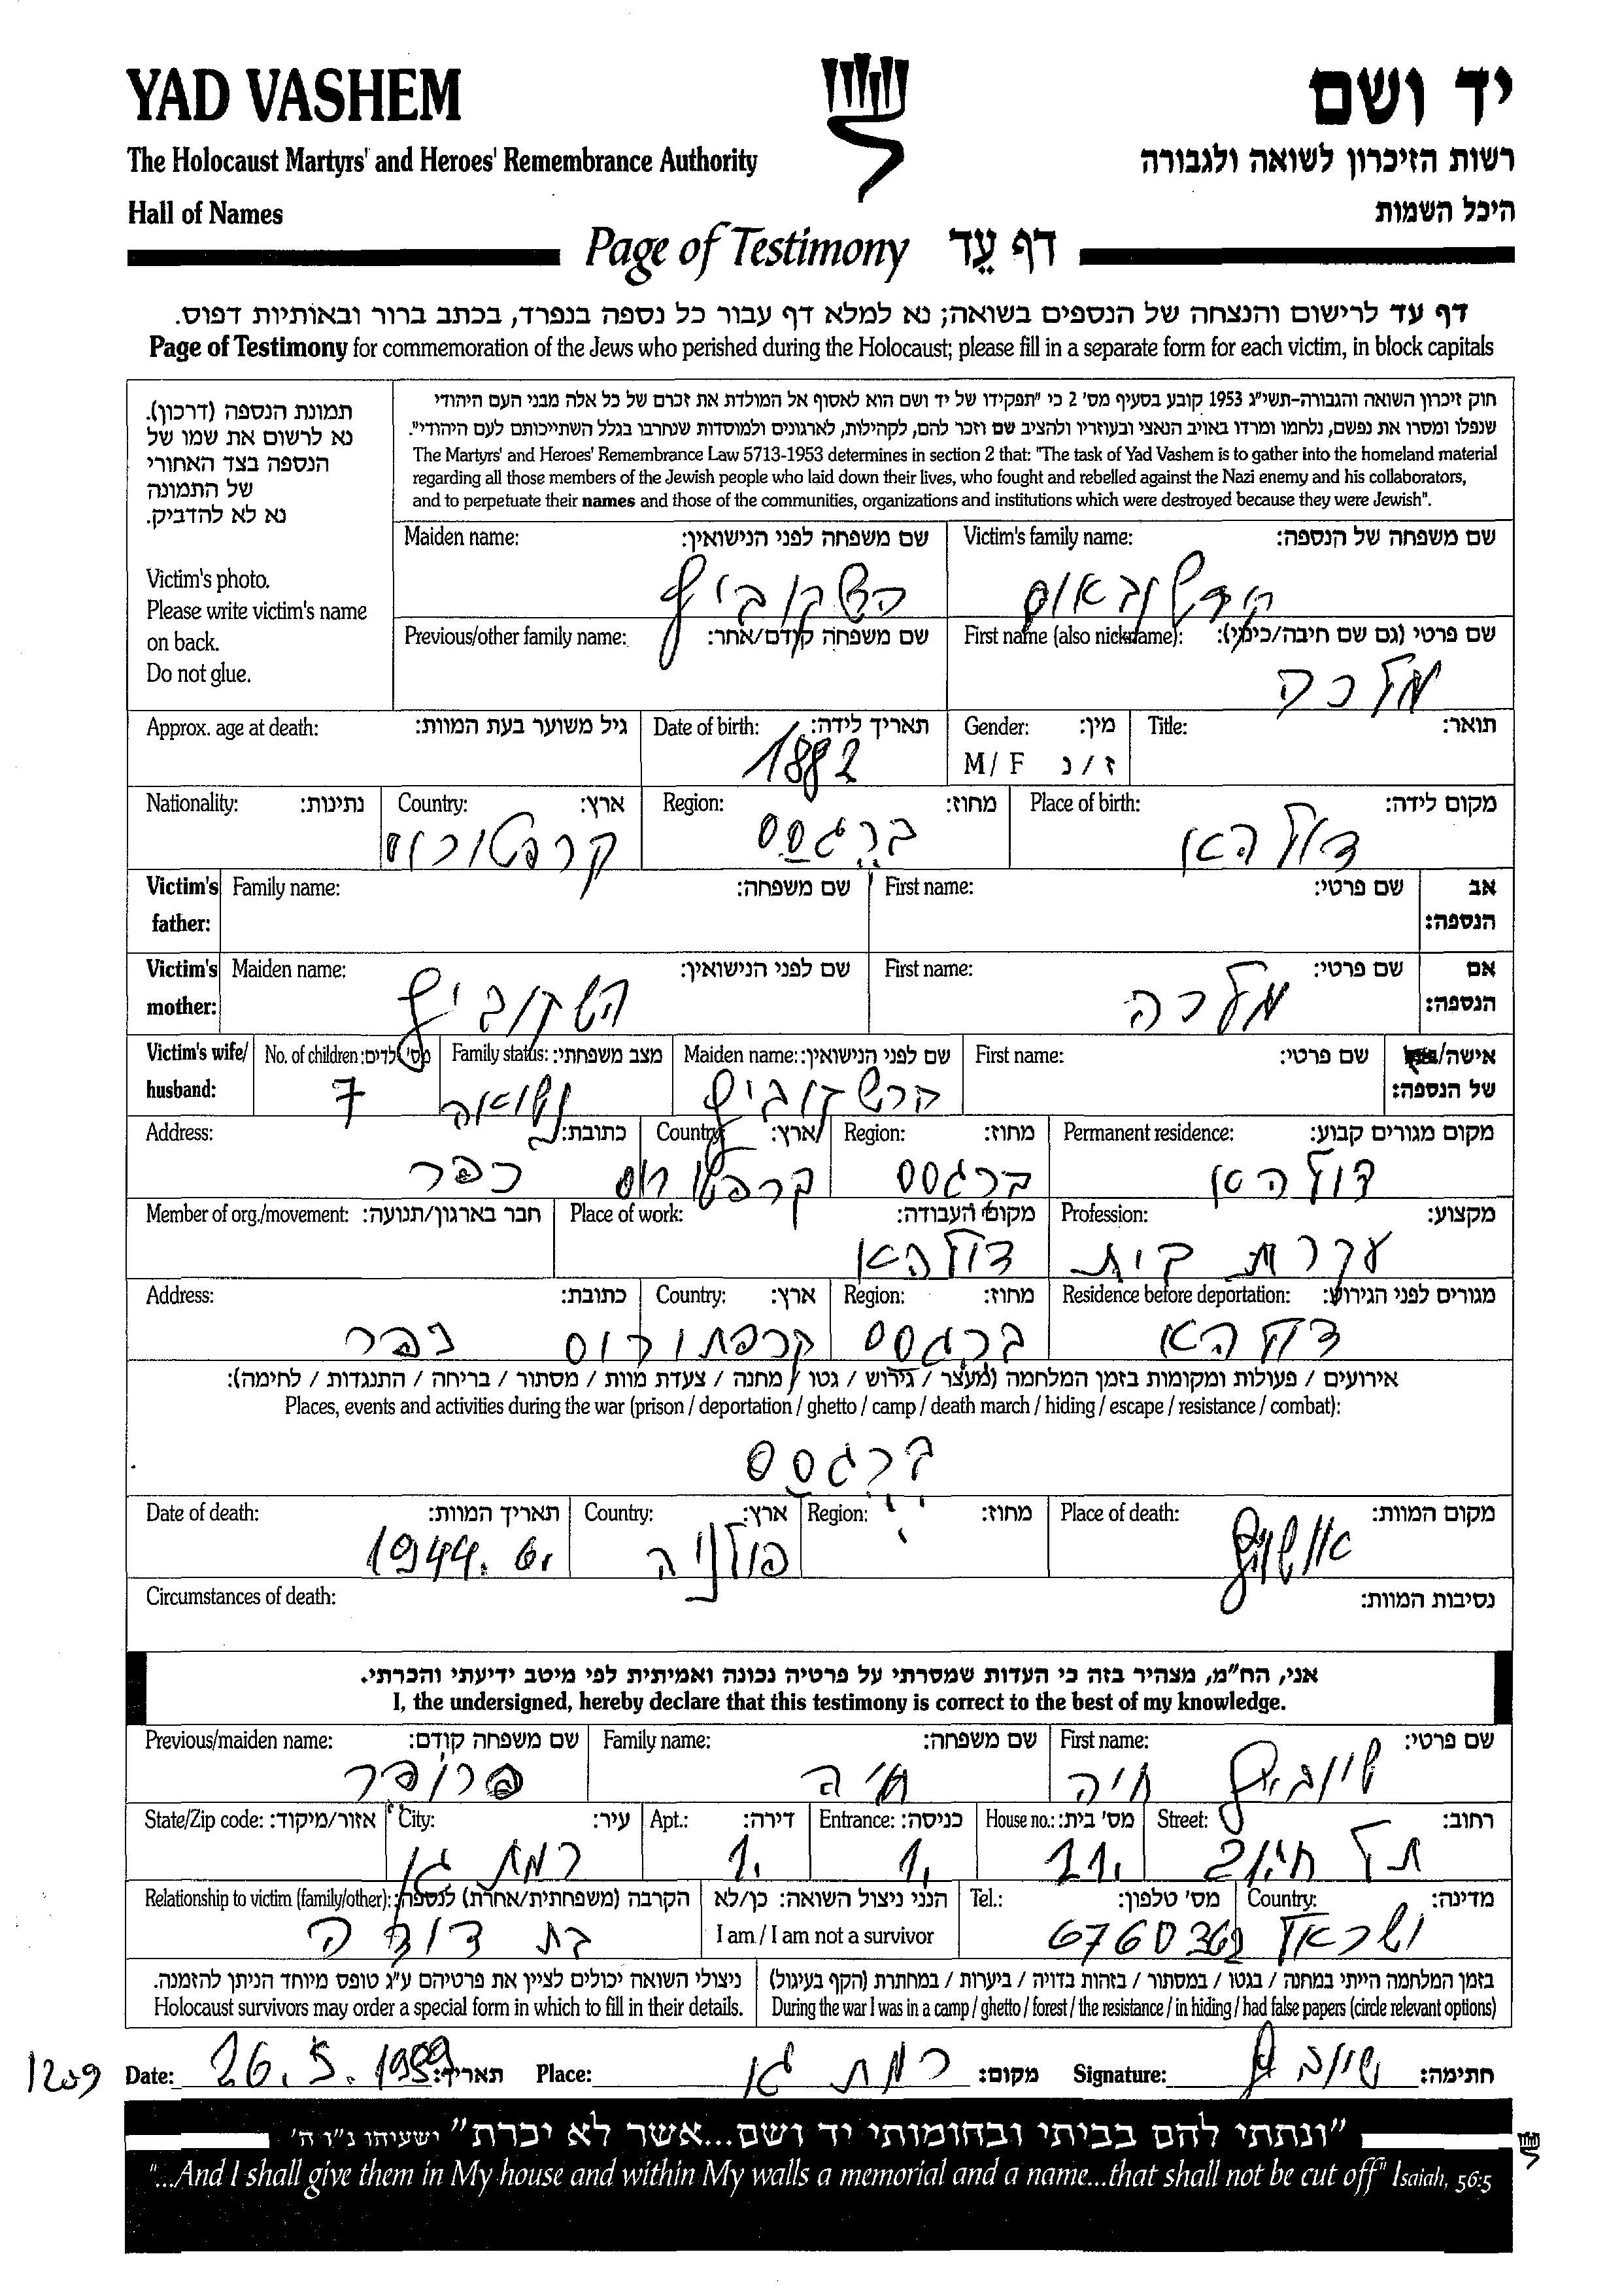 YAD VASHEM
יד ושם
The Holocaust Martyrs' and Heroes' Remembrance Authority
רשות הזיכרון לשואה ולגבורה
Hall of Names
היכל השמות
Page of Testimony דף עֵד
דף עד לרישום והנצחה של הנספים בשואה; נא למלא דף עבור כל נספה בנפרד, בכתב ברור ובאותיות דפוס.
Page of Testimony for commemoration of the Jews who perished during the Holocaust; please fill in a separate form for each victim, in block capitals
תמונת הנספה (דרכון).
נא לרשום את שמו של
הנספה בצד האחורי
של התמונה
נא לא להדביק.
Victim's photo.
Please write victim's name
on back.
Do not glue.
חוק זיכרון השואה והגבורה-תשי"ג 1953 קובע בסעיף מס' 2 כי "תפקידו של יד ושם הוא לאסוף אל המולדת את זכרם של כל אלה מבני העם היהודי
שנפלו ומסרו את נפשם, נלחמו ומרדו באויב הנאצי ובעוזריו ולהציב שם וזכר להם, לקהילות, לארגונים ולמוסדות שנחרבו בגלל השתייכותם לעם היהודי".
The Martyrs' and Heroes' Remembrance Law 5713-1953 determines in section 2 that: "The task of Yad Vashem is to gather into the homeland material
regarding all those members of the Jewish people who laid down their lives, who fought and rebelled against the Nazi enemy and his collaborators,
and to perpetuate their names and those of the communities, organizations and institutions which were destroyed because they were Jewish".
Victim's family name: שם משפחה של הנספה:
Maiden name: שם משפחה לפני הנישואין:
הרשקוביץ
First name (also nickname): שם פרטי (גם שם חיבה/כינוי):
מלכה
Previous/other family name: שם משפחה קודם/אחר:
Title: תואר:
Gender: מין:
M / F ז / נ
Date of birth: תאריך לידה:
1882
Approx. age at death: גיל משוער בעת המוות:
Place of birth: מקום לידה:
דולהא
Region: מחוז:
ברגסס
Country: ארץ:
קרפטורוס
Nationality: נתינות:
Victim's father: אב הנספה:
First name: שם פרטי:
Family name: שם משפחה:
Victim's mother: אם הנספה:
First name: שם פרטי:
מלכה
Maiden name: שם לפני הנישואין:
הרשקוביץ
Victim's wife/ husband: אישה/ של הנספה:
First name: שם פרטי:
Maiden name: שם לפני הנישואין:
הרשקוביץ
Family status: מצב משפחתי:
נשואה
No. of children: מס' ילדים:
7
Permanent residence: מקום מגורים קבוע:
דולהא
Region: מחוז:
ברגסס
Country: ארץ:
קרפטורוס
Address: כתובת:
כפר
Profession: מקצוע:
עקרת בית
Place of work: מקום העבודה:
דולהא
Member of org./movement: חבר בארגון/תנועה:
Residence before deportation: מגורים לפני הגירוש:
דולהא
Region: מחוז:
ברגסס
Country: ארץ:
קרפתורוס
Address: כתובת:
כפר
אירועים / פעולות ומקומות בזמן המלחמה (מעצר / גירוש / גטו / מחנה / צעדת מוות / מסתור / בריחה / התנגדות / לחימה):
Places, events and activities during the war (prison / deportation / ghetto / camp / death march / hiding / escape / resistance / combat):
ברגסס
Place of death: מקום המוות:
אושויץ
Region: מחוז:
Country: ארץ:
פולניה
Date of death: תאריך המוות:
1944.6.
Circumstances of death: נסיבות המוות:
אני, הח"מ, מצהיר בזה כי העדות שמסרתי על פרטיה נכונה ואמיתית לפי מיטב ידיעתי והכרתי.
I, the undersigned, hereby declare that this testimony is correct to the best of my knowledge.
First name: שם פרטי:
חיה
Family name: שם משפחה:
חיה
Previous/maiden name: שם משפחה קודם:
פרופר
Street: רחוב:
תל חי
House no.: מס' בית:
21.
Entrance: כניסה:
1.
Apt.: דירה:
1.
City: עיר:
רמת גן
State/Zip code: אזור/מיקוד:
Country: מדינה:
ישראל
Tel.: מס' טלפון:
6760362
הנני ניצול השואה: כן/לא
I am / I am not a survivor
Relationship to victim (family/other): הקרבה (משפחתית/אחרת) לנספה:
בת דודה
בזמן המלחמה הייתי במחנה / בגטו / במסתור / בזהות בדויה / ביערות / במחתרת (הקף בעיגול)
During the war I was in a camp / ghetto / forest / the resistance / in hiding / had false papers (circle relevant options)
ניצולי השואה יכולים לציין את פרטיהם ע"ג טופס מיוחד הניתן להזמנה.
Holocaust survivors may order a special form in which to fill in their details.
1209
Date: 26.5.1999 תאריך:
Place: רמת גן מקום:
Signature: חתימה:
"ונתתי להם בביתי ובחומותי יד ושם...אשר לא יכרת" ישעיהו נ"ו ה'
"...And I shall give them in My house and within My walls a memorial and a name...that shall not be cut off" Isaiah, 56:5